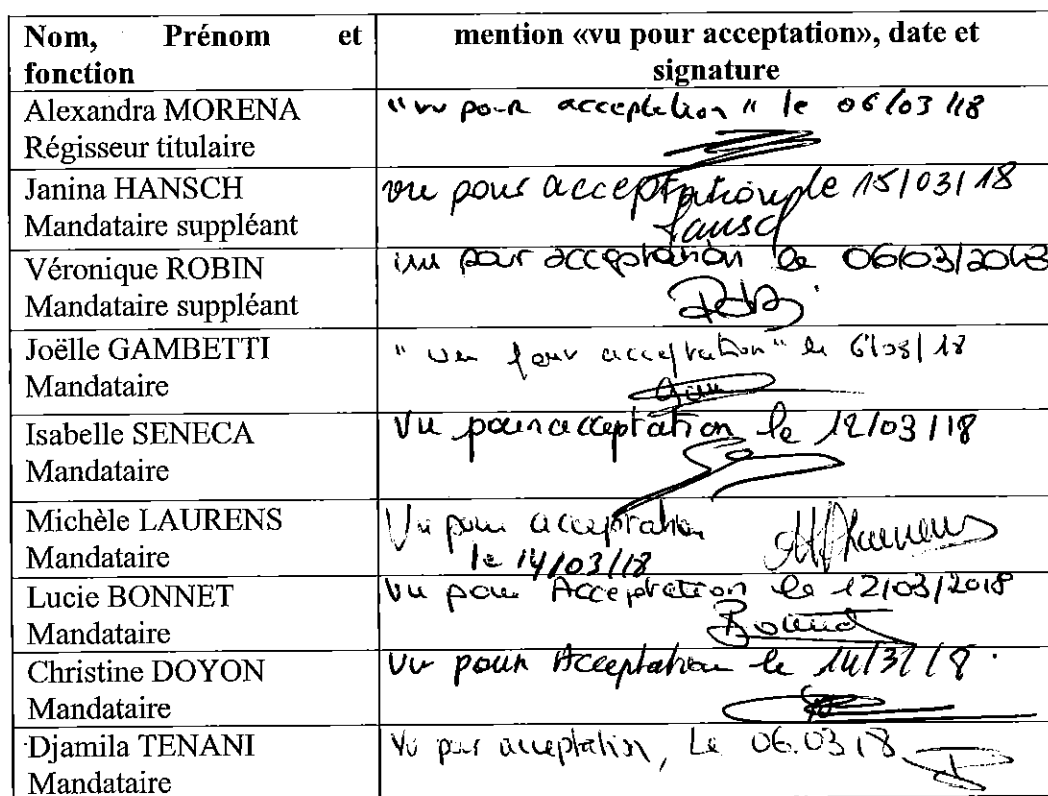 Nom, Prénom et fonction
mention «vu pour acceptation», date et signature
Alexandra MORENA
Régisseur titulaire
"vu pour acceptation" le 06/03/18
Janina HANSCH
Mandataire suppléant
vu pour acceptation le 15/03/18
Véronique ROBIN
Mandataire suppléant
vu pour acceptation le 06/03/2018
Joëlle GAMBETTI
Mandataire
"vu pour acceptation" le 6/03/18
Isabelle SENECA
Mandataire
Vu pour acceptation le 12/03/18
Michèle LAURENS
Mandataire
Vu pour acceptation
le 14/03/18
Lucie BONNET
Mandataire
Vu pour Acceptation le 12/03/2018
Bonnet
Christine DOYON
Mandataire
Vu pour Acceptation le
Djamila TENANI
Mandataire
Vu pour acceptation, Le 06.03 18